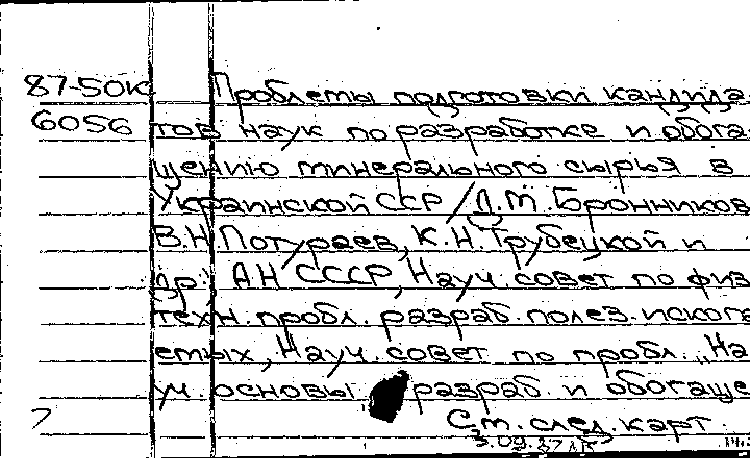 87-50К Проблемы подготовки кандида-
6056 тов наук по разработке и обога-
щению минерального сырья в
Украинской ССР / Д.М. Бронников
В.Н. Потураев, К.Н. Трубецкой и
др.; АН СССР, Науч. совет по физ
техн. пробл. разраб. полез. ископа
емых, Науч. совет по пробл. "На
уч. основы разраб. и обогаще
См. след. карт